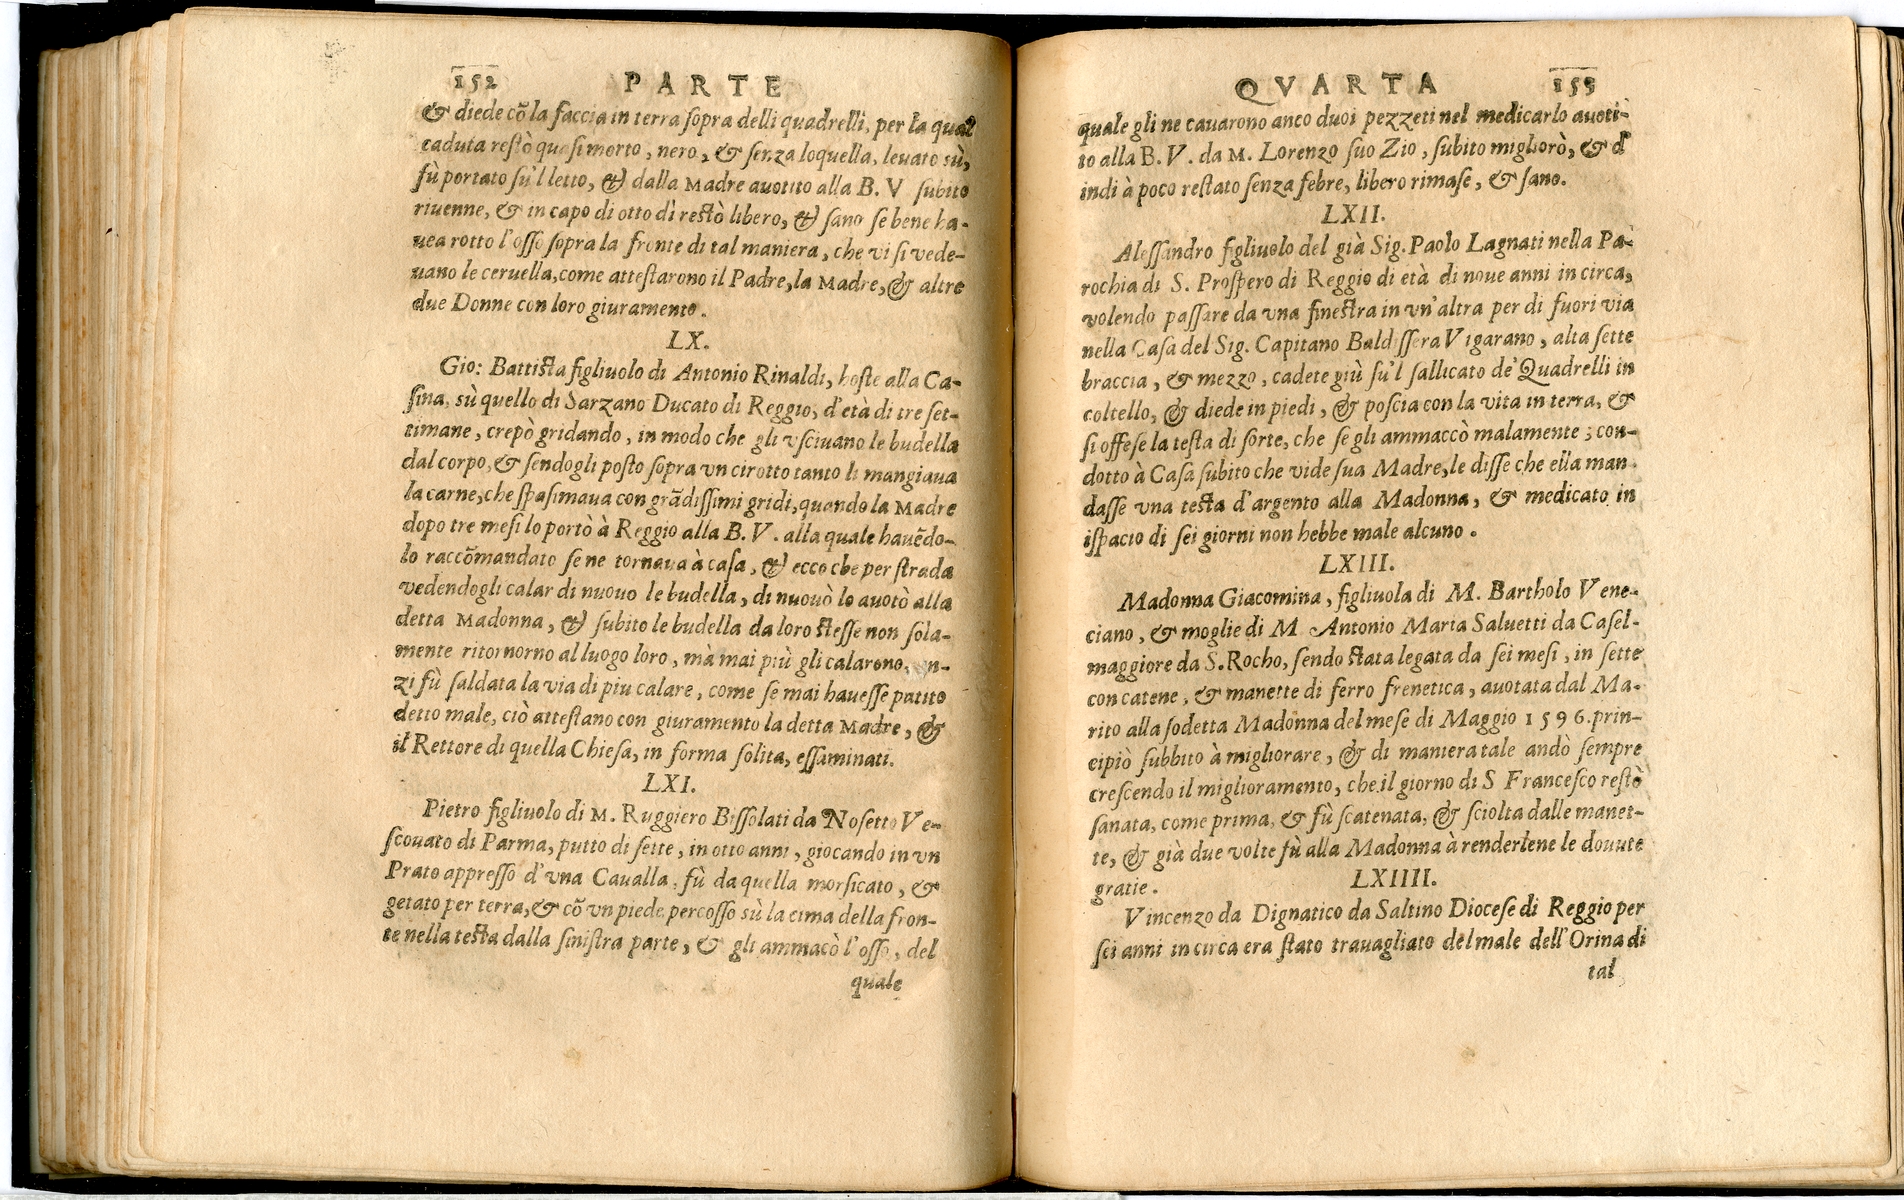 152 PARTE
& diede cõ la faccia in terra sopra delli quadrelli, per la qual
caduta restò quasi morto, nero, & senza loquella, leuato sù,
fù portato su'l letto, & dalla Madre auotito alla B. V subito
riuenne, & in capo di otto dì restò libero, & sano se bene ha-
uea rotto l'osso sopra la fronte di tal maniera, che vi si vede-
uano le ceruella, come attestarono il Padre, la Madre, & altre
due Donne con loro giuramento.
LX.
Gio: Battista figliuolo di Antonio Rinaldi, hoste alla Ca-
sina, sù quello di Sarzano Ducato di Reggio, d'età di tre set-
timane, crepò gridando, in modo che gli vsciuano le budella
dal corpo, & sendogli posto sopra vn cirotto tanto li mangiaua
la carne, che spasimaua con grãdissimi gridi, quando la Madre
dopo tre mesi lo portò à Reggio alla B. V. alla quale hauẽdo-
lo raccõmandato se ne tornaua à casa, & ecco che per strada
vedendogli calar di nuouo le budella, di nuouò lo auotò alla
detta Madonna, & subito le budella da loro stesse non sola-
mente ritornorno al luogo loro, mà mai più gli calarono, n-
zi fù saldata la via di piu calare, come se mai hauesse patito
detto male, ciò attestano con giuramento la detta Madre, &
il Rettore di quella Chiesa, in forma solita, essaminati.
LXI.
Pietro figliuolo di M. Ruggiero Bissolati da Nosetto Ve-
scouato di Parma, putto di sette, in otto anni, giocando in vn
Prato appresso d'vna Caualla, fù da quella morsicato, &
getato per terra, & cõ vn piede percosso sù la cima della fron-
te nella testa dalla sinistra parte, & gli ammacò l'osso, del
quale
QVARTA 153
quale gli ne cauarono anco duoi pezzeti nel medicarlo auoti-
to alla B. V. da M. Lorenzo suo Zio, subito migliorò, & d'
indi à poco restato senza febre, libero rimase, & sano.
LXII.
Alessandro figliuolo del già Sig. Paolo Lagnati nella Pa-
rochia di S. Prospero di Reggio di età di noue anni in circa,
volendo passare da vna finestra in vn'altra per di fuori via
nella Casa del Sig. Capitano Baldissera Vigarano, alta sette
braccia, & mezzo, cadete giù su'l sallicato de' Quadrelli in
coltello, & diede in piedi, & poscia con la vita in terra, &
si offese la testa di sorte, che se gli ammaccò malamente; con-
dotto à Casa subito che vide sua Madre, le disse che ella man-
dasse vna testa d'argento alla Madonna, & medicato in
ispacio di sei giorni non hebbe male alcuno.
LXIII.
Madonna Giacomina, figliuola di M. Bartholo Vene-
ciano, & moglie di M. Antonio Maria Saluetti da Casel-
maggiore da S. Rocho, sendo stata legata da sei mesi, in sette
con catene, & manette di ferro frenetica, auotata dal Ma-
rito alla sodetta Madonna del mese di Maggio 1596. prin-
cipiò subbito à migliorare, & di maniera tale andò sempre
crescendo il miglioramento, che il giorno di S Francesco restò
sanata, come prima, & fù scatenata, & sciolta dalle manet-
te, & già due volte fù alla Madonna à renderlene le douute
gratie.
LXIIII.
Vincenzo da Dignatico da Saltino Diocese di Reggio per
sei anni in circa era stato trauagliato del male dell'Orina di
tal